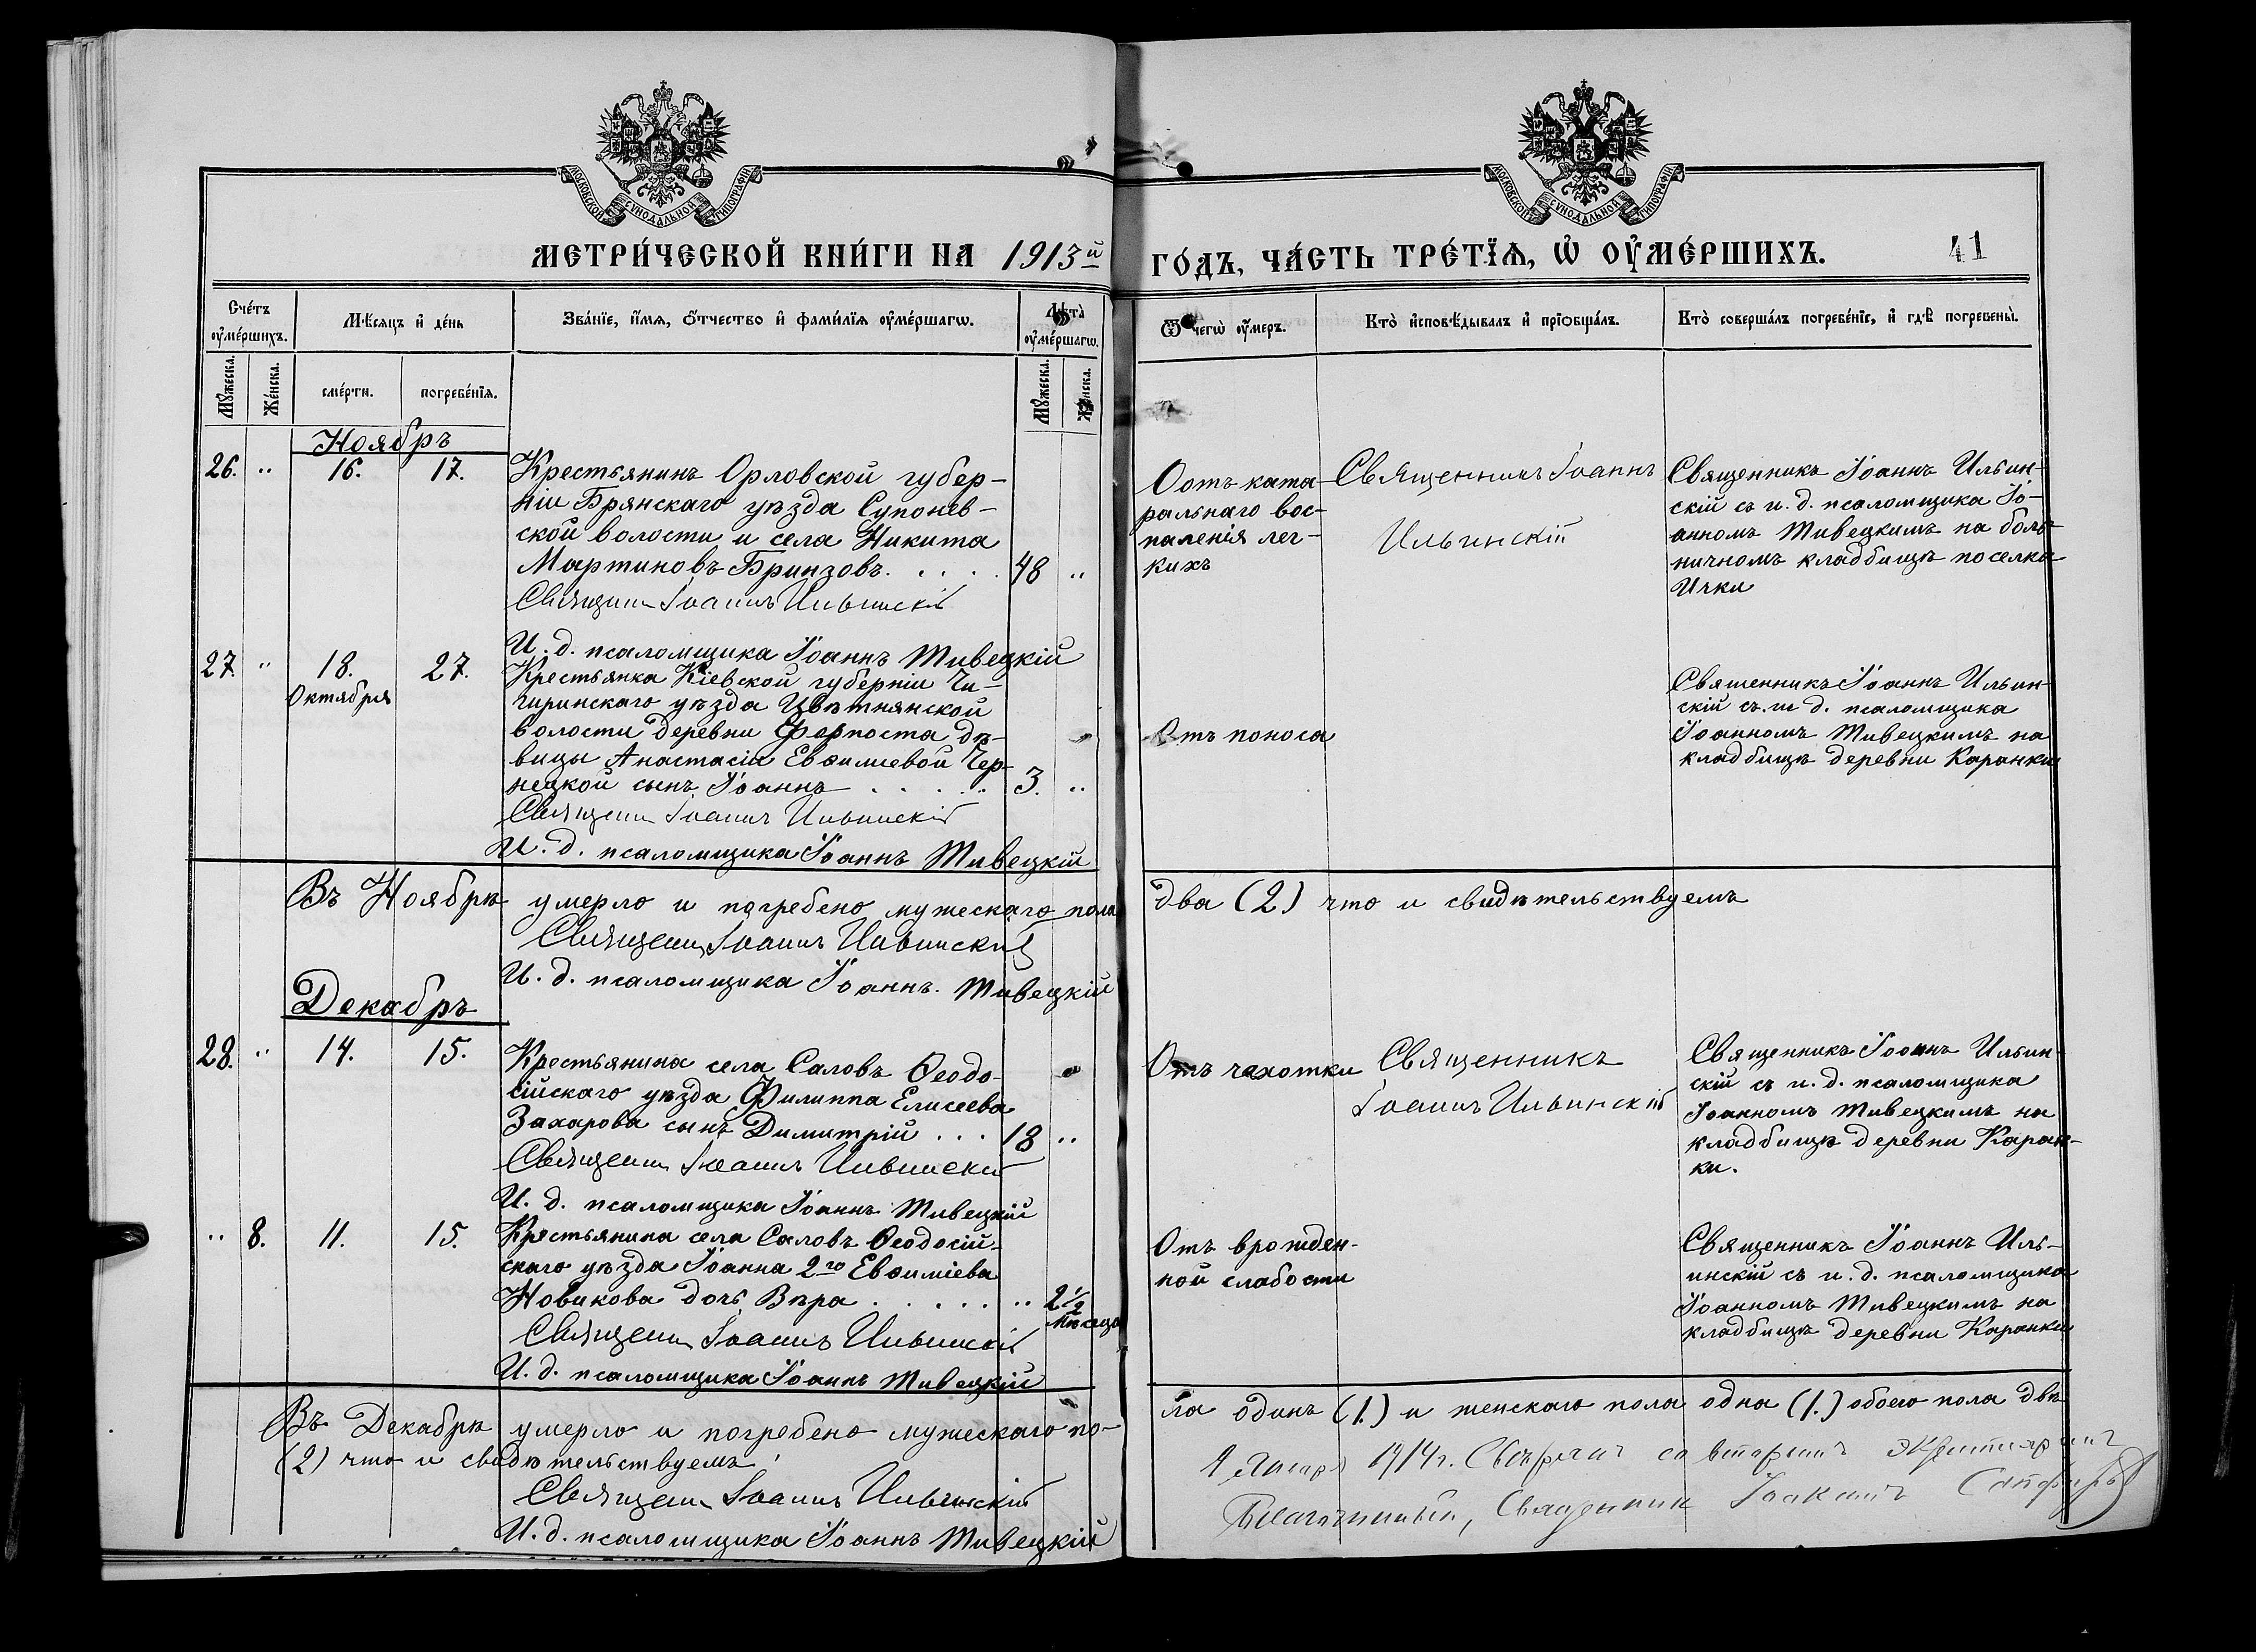 МОСКОВСКОЙ СѴНОДАЛЬНОЙ ТИПОГРАФІИ
МОСКОВСКОЙ СѴНОДАЛЬНОЙ ТИПОГРАФІИ
МЕТРИ́ЧЕСКОЙ КНИ́ГИ НА 1913й
ГО́ДЪ, ЧА́СТЬ ТРЕ́ТЇѦ, Ѡ҆ ОУ҆МЕ́РШИХЪ.
41
Сче́тъ оу҆ме́ршихъ.
Мѣ́сяцъ и҆ де́нь
Зва́нїе, и҆́мя, ѻ҆́тчество и҆ фами́лїя оу҆ме́ршагѡ.
Лѣ̀та оу҆ме́ршагѡ.
Ѿ чегѡ̀ оу҆́меръ.
Кто̀ и҆сповѣ́дывалъ и҆ прїѻбща́лъ.
Кто̀ соверша́лъ погребе́нїе, и҆ гдѣ̀ погребены̀.
Мꙋ́жеска.
Же́нска.
сме́рти.
погребе́нїя.
Мꙋ́жеска.
Же́нска.
Ноябрь
26. „ 16. 17. Крестьянинъ Орловской губер-
ніи Брянскаго уѣзда Супонев-
ской волости и села Никита
Мартиновъ Бринзовъ. . . . 48 „
Священн Іоаннъ Ильинскій
И. д. псаломщика Іоаннъ Тивецкій
Оотъ ката-
ральнаго вос-
паленія лег-
кихъ
Священникъ Іоаннъ
Ильинскій
Священникъ Іоаннъ Ильин-
скій съ и. д. псаломщика Іо-
анномъ Тивецкимъ на боль-
ничномъ кладбищѣ поселка
Ички
27. „ 18. 27. Крестьянка Кіевской губерніи Чи-
Октября
гиринскаго уѣзда Цвѣтнянской
волости деревни Форпоста дѣ-
вицы Анастасіи Евѳиміевой Чер-
нецкой сынъ Іоаннъ . . . . . 3. „
Священн Іоаннъ Ильинскій
И. д. псаломщика Іоаннъ Тивецкій
Отъ поноса
Священникъ Іоаннъ Ильин-
скій съ и д. псаломщика
Іоанномъ Тивецкимъ на
кладбищѣ деревни Каранки
Въ Ноябрѣ умерло и погребено мужескаго пола
два (2) что и свидѣтельствуемъ
Священн Іоаннъ Ильинскій
И. д. псаломщика Іоаннъ. Тивецкій
Декабрь
28. „ 14. 15. Крестьянина села Саловъ Ѳеодо-
сійскаго уѣзда Филиппа Елисеева
Захарова сынъ Димитрій . . . 18 „
Священн Іоаннъ Ильинскій
И. д. псаломщика Іоаннъ Тивецкій
Отъ чахотки
Священникъ
Іоаннъ Ильинскій
Священникъ Іоаннъ Ильин-
скій съ и. д. псаломщика
Іоанномъ Тивецкимъ на
кладбищѣ деревни Каран-
ки.
„ 8. 11. 15. Крестьянина села Саловъ Ѳеодосій-
скаго уѣзда Іоанна 2го Евѳиміева
Новикова дочь Вѣра . . . . . „ 2 1/2
мѣсяца
Священн Іоаннъ Ильинскій
И. д. псаломщика Іоаннъ Тивецкій
Отъ врожден-
ной слабости
Священникъ Іоаннъ Иль-
инскій съ и. д. псаломщика
Іоанномъ Тивецкимъ на
кладбищѣ деревни Каранки
Въ Декабрѣ умерло и погребено мужескаго по-
ла одинъ (1.) и женскаго пола одна (1.) обоего пола двѣ
(2) что и свидѣтельствуемъ
Священн Іоаннъ Ильинскій
И. д. псаломщика Іоаннъ Тивецкій
Января 1914 г. Свѣрялъ со вторымъ экземпляромъ
Благочинный, Священникъ